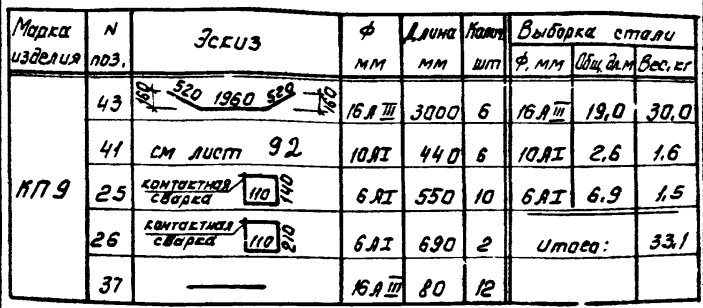 Марка изделия N поз. Эскиз Ф мм Длина мм Колич шт Выборка стали
Ф. мм Общ. дл. м Вес, кг
43 160 520 1960 520 160 16 А III 3000 6 16 А III 19,0 30,0
41 см лист 92 10 А I 440 6 10 А I 2,6 1,6
КП 9 25 контактная сварка 110 140 6 А I 550 10 6 А I 6.9 1,5
26 контактная сварка 110 210 6 А I 690 2 Итого: 33,1
37 16 А III 80 12